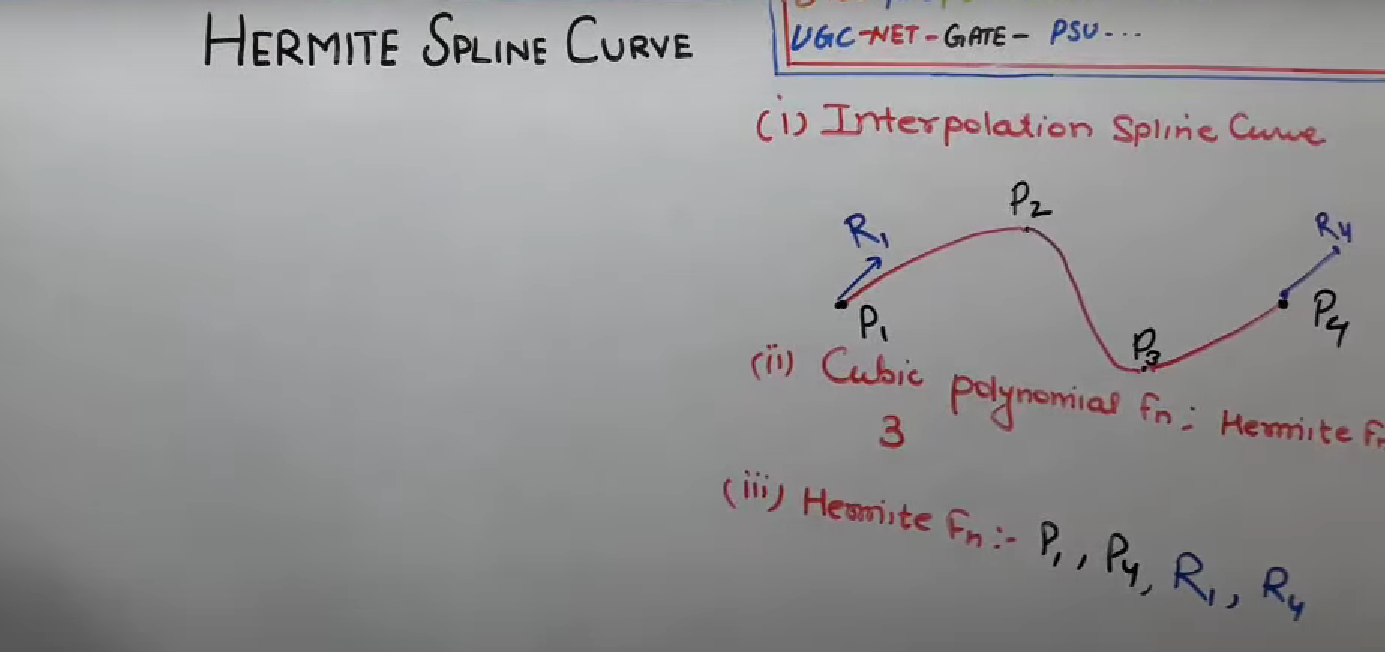 HERMITE SPLINE CURVE
UGC-NET-GATE- PSU...
(i) Interpolation Spline Curve
P2
R1
R4
P1
P4
P3
(ii) Cubic polynomial fn: Hermite
3
(iii) Hermite Fn:- P1, P4, R1, R4